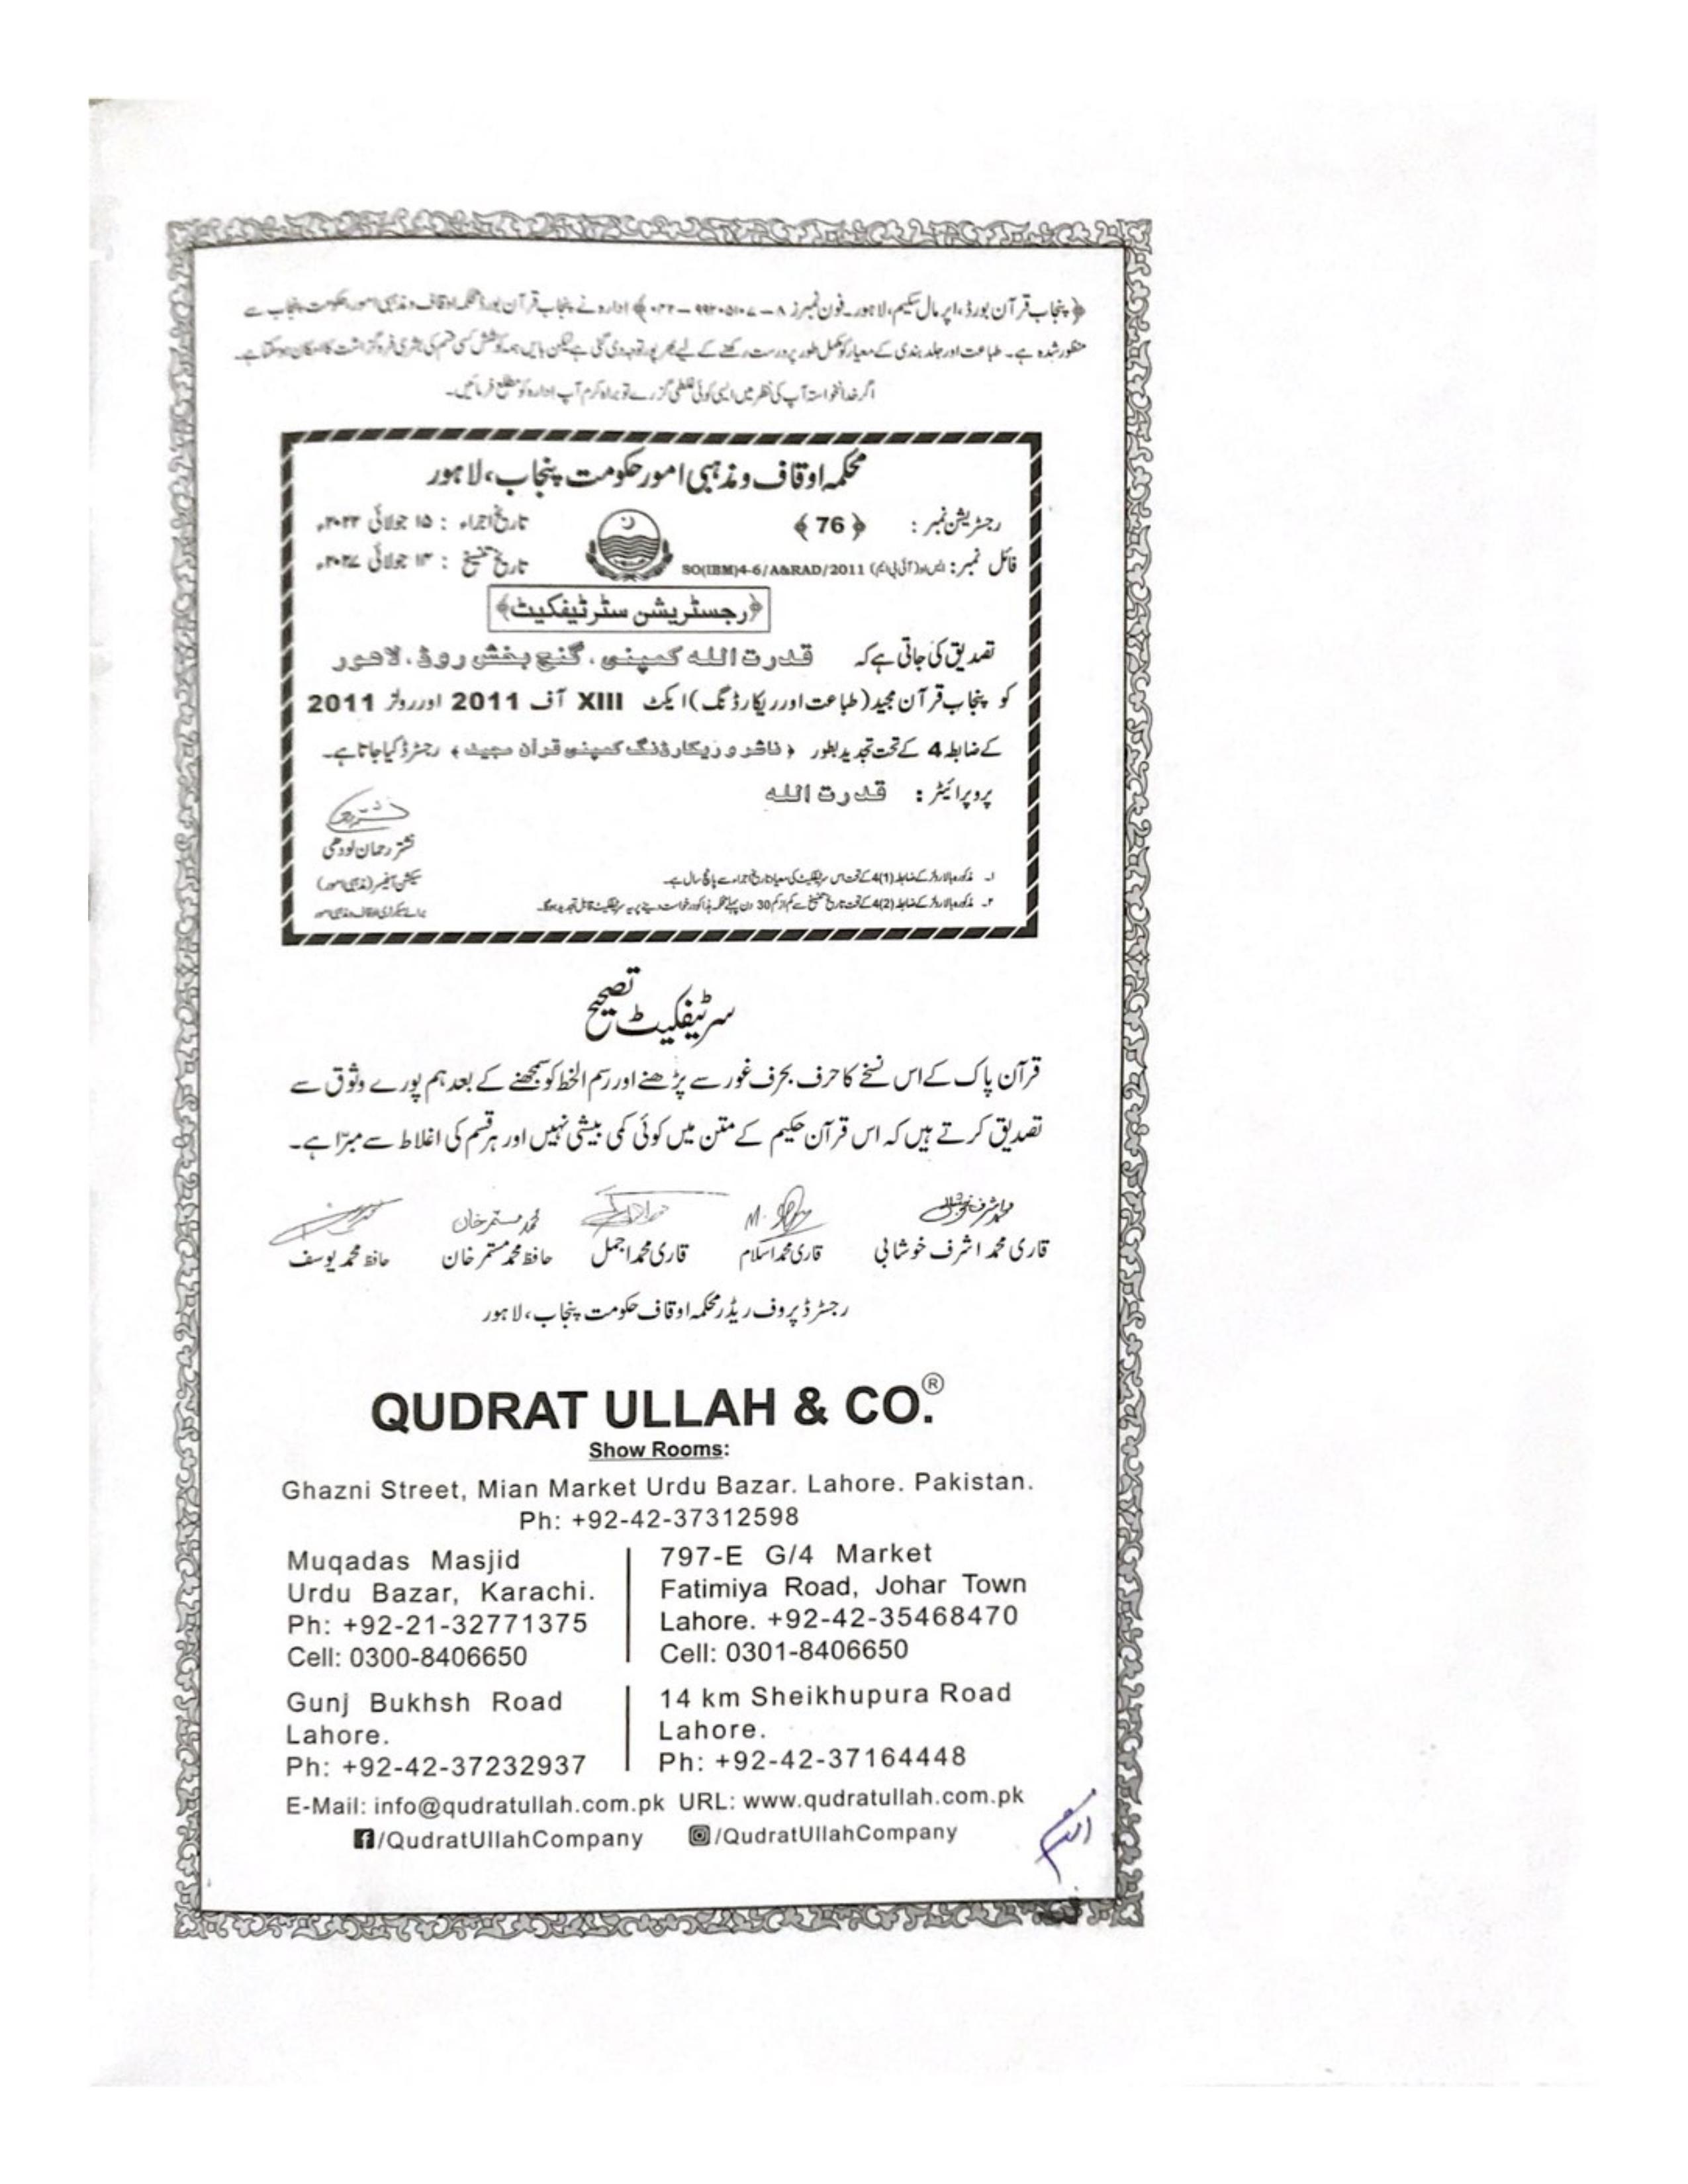 ﴿ پنجاب قرآن بورڈ، اپر مال سکیم، لاہور۔ فون نمبرز ۸ – ۹۹۲۰۵۱۰۷ – ۰۴۲ ﴾ ادارہ نے پنجاب قرآن بورڈ محکمہ اوقاف و مذہبی امور حکومت پنجاب سے
منظور شدہ ہے۔ طباعت اور جلد بندی کے معیار کو مکمل طور پر درست رکھنے کے لیے بھرپور توجہ دی گئی ہے لیکن بایں ہمہ کوشش کسی قسم کی بشری فروگزاشت کا امکان ہو سکتا ہے۔
اگر خدانخواستہ آپ کی نظر میں ایسی کوئی غلطی گزرے تو براہ کرم آپ ادارہ کو مطلع فرمائیں۔
محکمہ اوقاف و مذہبی امور حکومت پنجاب، لاہور
رجسٹریشن نمبر : ﴿ 76 ﴾ تاریخ اجراء : ۱۵ جولائی
فائل نمبر : ایس او (آئی بی ایم) SO(IBM)4-6/A&RAD/2011 تاریخ تنسیخ : ۱۴ جولائی ۲۰۲۷ء
﴿رجسٹریشن سرٹیفکیٹ﴾
تصدیق کی جاتی ہے کہ قدرت اللہ کمپنی، گنج بخش روڈ، لاهور
کو پنجاب قرآن مجید (طباعت اور ریکارڈنگ) ایکٹ XIII آف 2011 اور رولز 2011
کے ضابطہ 4 کے تحت تجدید بطور ﴿ ناشر و ریکارڈنگ کمپنی قرآن مجید ﴾ رجسٹرڈ کیا جاتا ہے۔
پروپرائیٹر : قدرت اللہ
نشتر رحمان لودھی
سیکشن آفیسر (مذہبی امور)
برائے سیکرٹری اوقاف و مذہبی امور
۱۔ مذکورہ بالا رولز کے ضابطہ 4(1) کے تحت اس سرٹیفکیٹ کی میعاد تاریخ اجراء سے پانچ سال ہے۔
۲۔ مذکورہ بالا رولز کے ضابطہ 4(2) کے تحت تاریخ تنسیخ سے کم از کم 30 دن پہلے محکمہ ہذا کو درخواست دینے پر یہ سرٹیفکیٹ قابل تجدید ہوگا۔
سرٹیفکیٹ تصحیح
قرآن پاک کے اس نسخے کا حرف بحرف غور سے پڑھنے اور رسم الخط کو سمجھنے کے بعد ہم پورے وثوق سے
تصدیق کرتے ہیں کہ اس قرآن حکیم کے متن میں کوئی کمی بیشی نہیں اور ہر قسم کی اغلاط سے مبرّا ہے۔
قاری محمد اشرف خوشابی قاری محمد اسلام قاری محمد اجمل حافظ محمد مستمر خان حافظ محمد یوسف
رجسٹرڈ پروف ریڈر محکمہ اوقاف حکومت پنجاب، لاہور
QUDRAT ULLAH & CO.®
Show Rooms:
Ghazni Street, Mian Market Urdu Bazar. Lahore. Pakistan.
Ph: +92-42-37312598
Muqadas Masjid
Urdu Bazar, Karachi.
Ph: +92-21-32771375
Cell: 0300-8406650
797-E G/4 Market
Fatimiya Road, Johar Town
Lahore. +92-42-35468470
Cell: 0301-8406650
Gunj Bukhsh Road
Lahore.
Ph: +92-42-37232937
14 km Sheikhupura Road
Lahore.
Ph: +92-42-37164448
E-Mail: info@qudratullah.com.pk URL: www.qudratullah.com.pk
/QudratUllahCompany /QudratUllahCompany